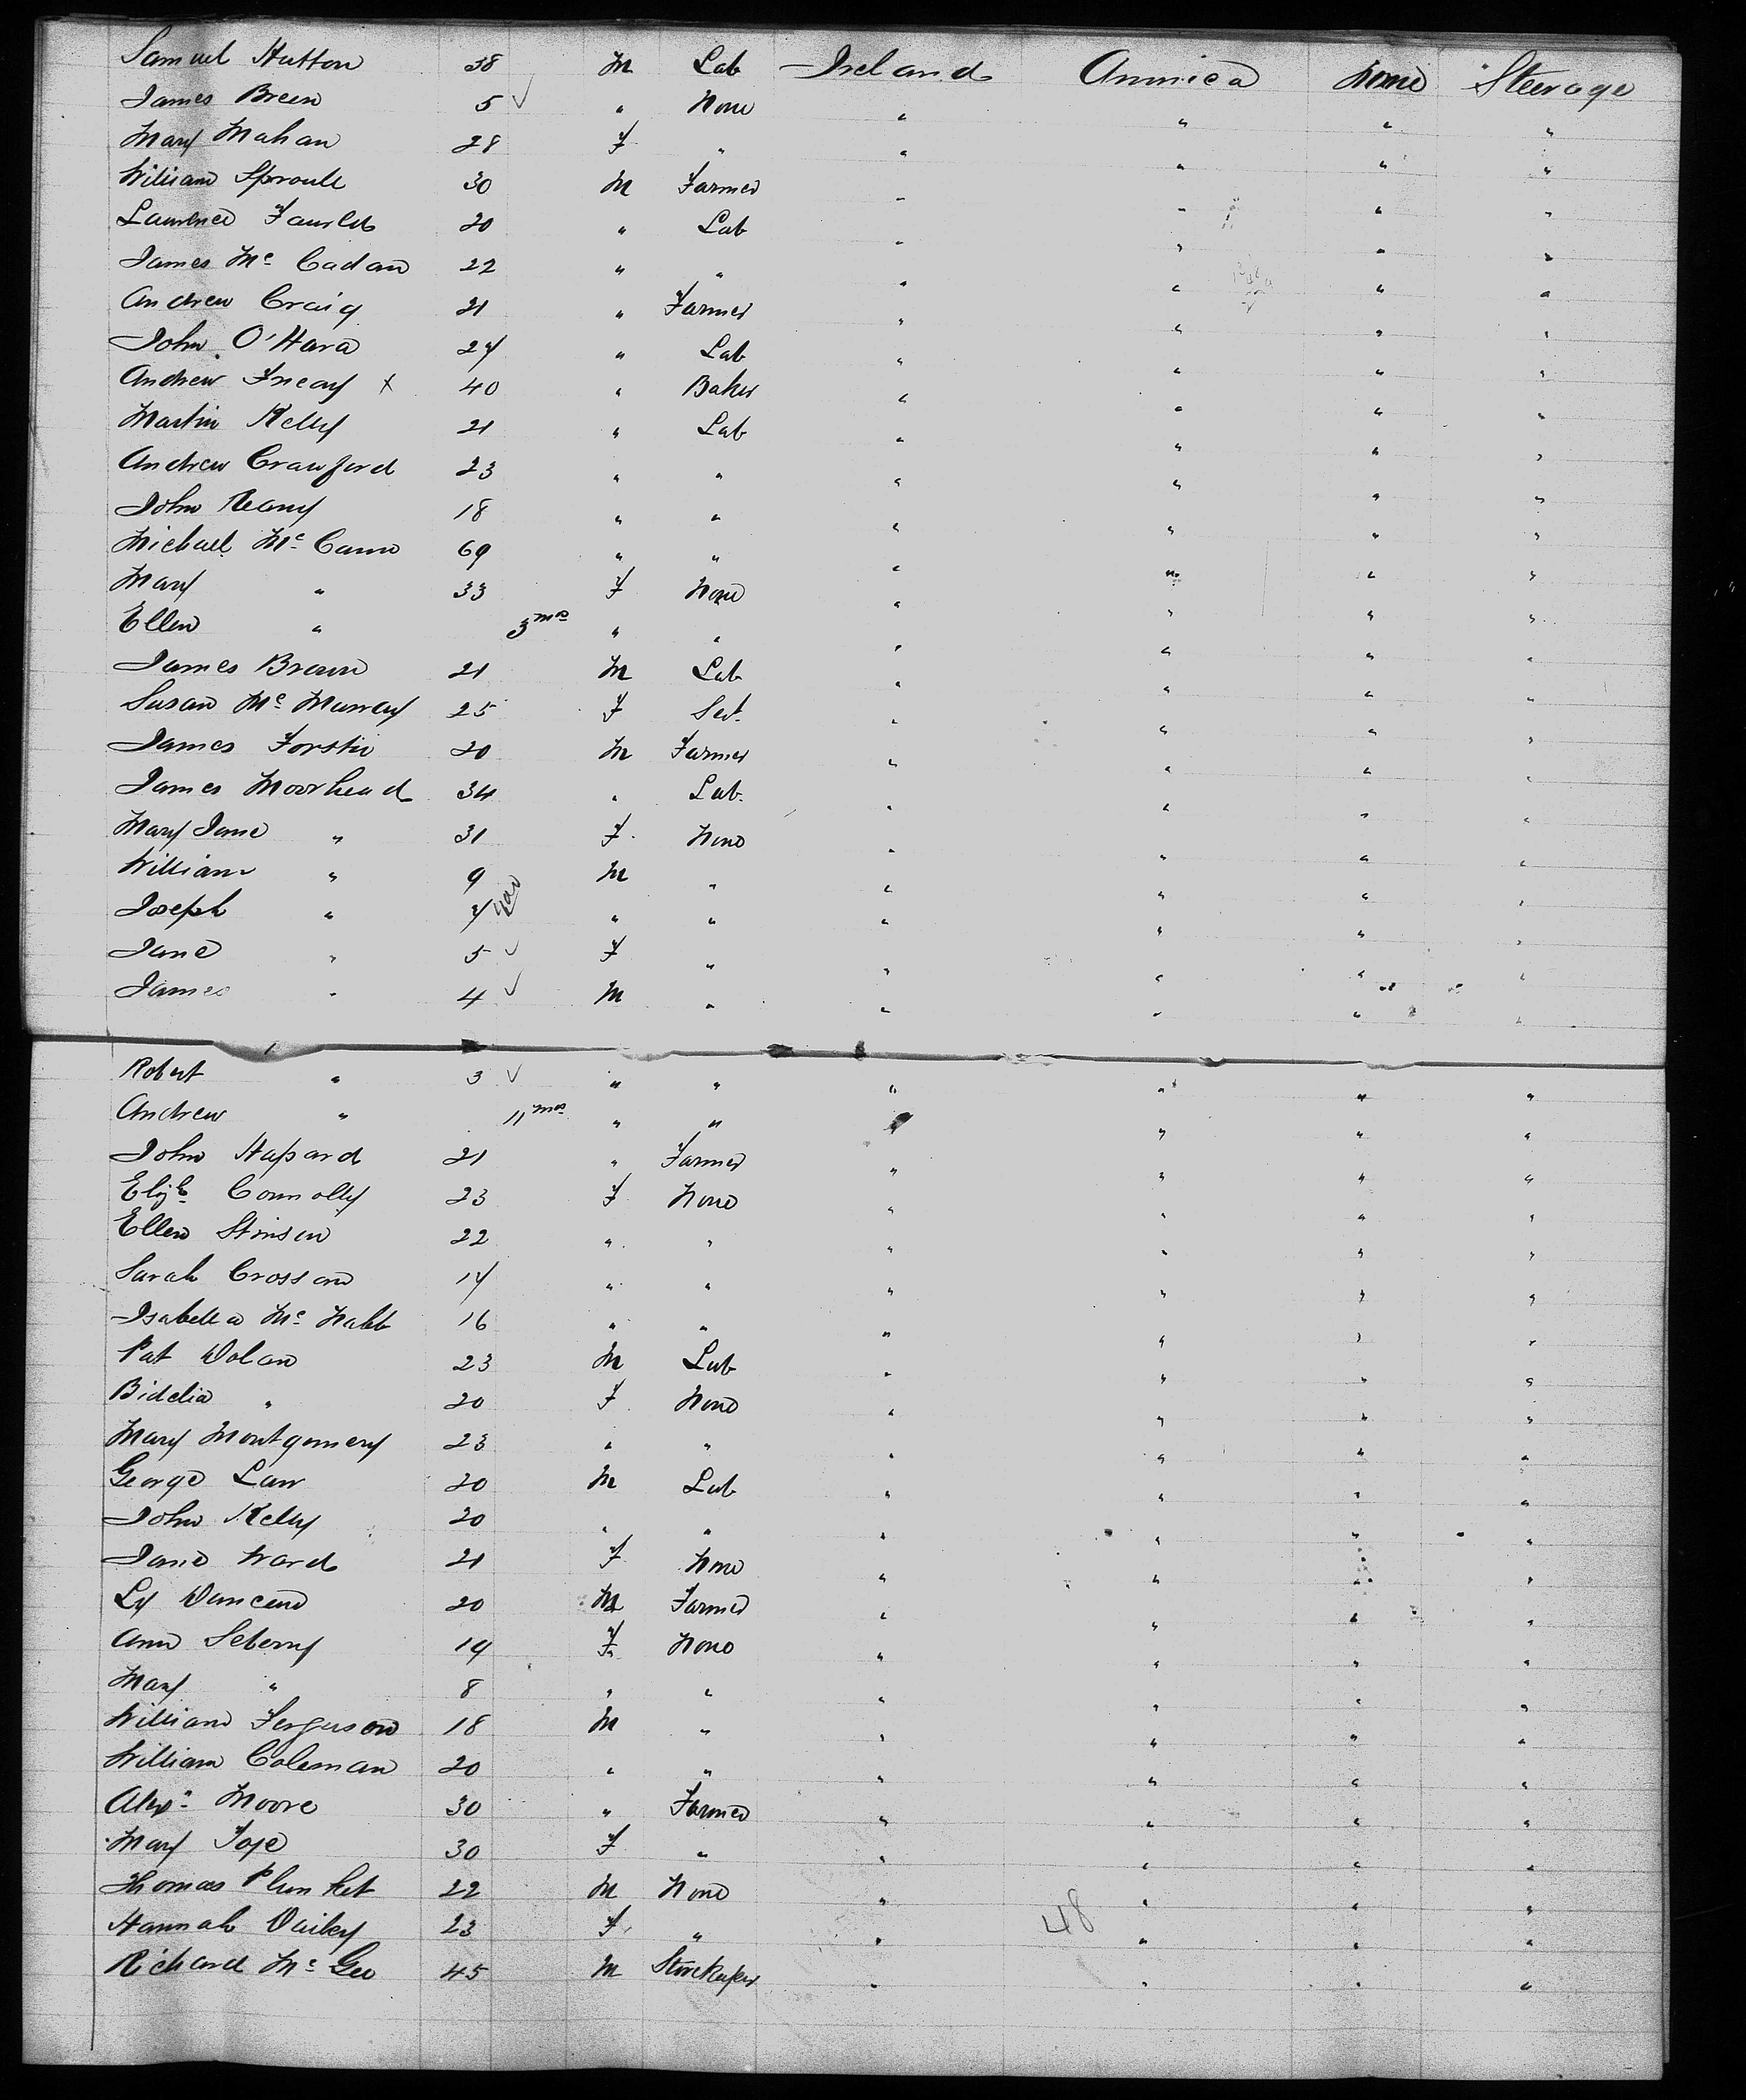 Samuel Hutton 38 M Lab Ireland America None Steerage
James Breen 5 ✓ " None " " " "
Mary Mahan 28 F " " " " "
William Sproule 30 M Farmer " " " "
Laurence 20 " Lab " " " "
James Mc Cadan 22 " " " " " "
Andrew Craig 21 " Farmer " " " "
John O'Hara 27 " Lab " " " "
Andrew x 40 " Baker " " " "
Martin Kelly 21 " Lab " " " "
Andrew Crawford 23 " " " " " "
John Reany 18 " " " " " "
Michael Mc Cann 69 " " " " " "
Mary " 33 F None " " " "
Ellen " 3 mos " " " " " "
James Brown 21 M Lab " " " "
Susan Mc Murray 25 F Svt. " " " "
James Forster 20 M Farmer " " " "
James Moorhead 34 " Lab. " " " "
Mary Jane " 31 F None " " " "
William " 9 M " " " " "
Joseph " 7 " " " " " "
Jane " 5 ✓ F " " " " "
James " 4 ✓ M " " " " "
Robert " 3 ✓ " " " " " "
Andrew " 11 mos " " " " " "
John Hassard 21 " Farmer " " " "
Elizth Connolly 23 F None " " " "
Ellen Stinson 22 " " " " " "
Sarah Crossan 17 " " " " " "
Isabella Mc Nabb 16 " " " " " "
Pat Dolan 23 M Lab " " " "
Bidelia " 20 F None " " " "
Mary Montgomery 23 " " " " " "
George Law 20 M Lab " " " "
John Kelly 20 " " " " " "
Jane Ward 21 F None " " " "
20 M Farmer " " " "
Ann Sebery 19 F None " " " "
Mary " 8 " " " " " "
William Ferguson 18 M " " " " "
William Coleman 20 " " " " " "
Alexr Moore 30 " Farmer " " " "
Mary 30 F " " " " "
Thomas Plunket 22 M None " " " "
Hannah Dailey 23 F " " 48 " " "
Richard Mc Gee 45 M Storekeeper " " " "